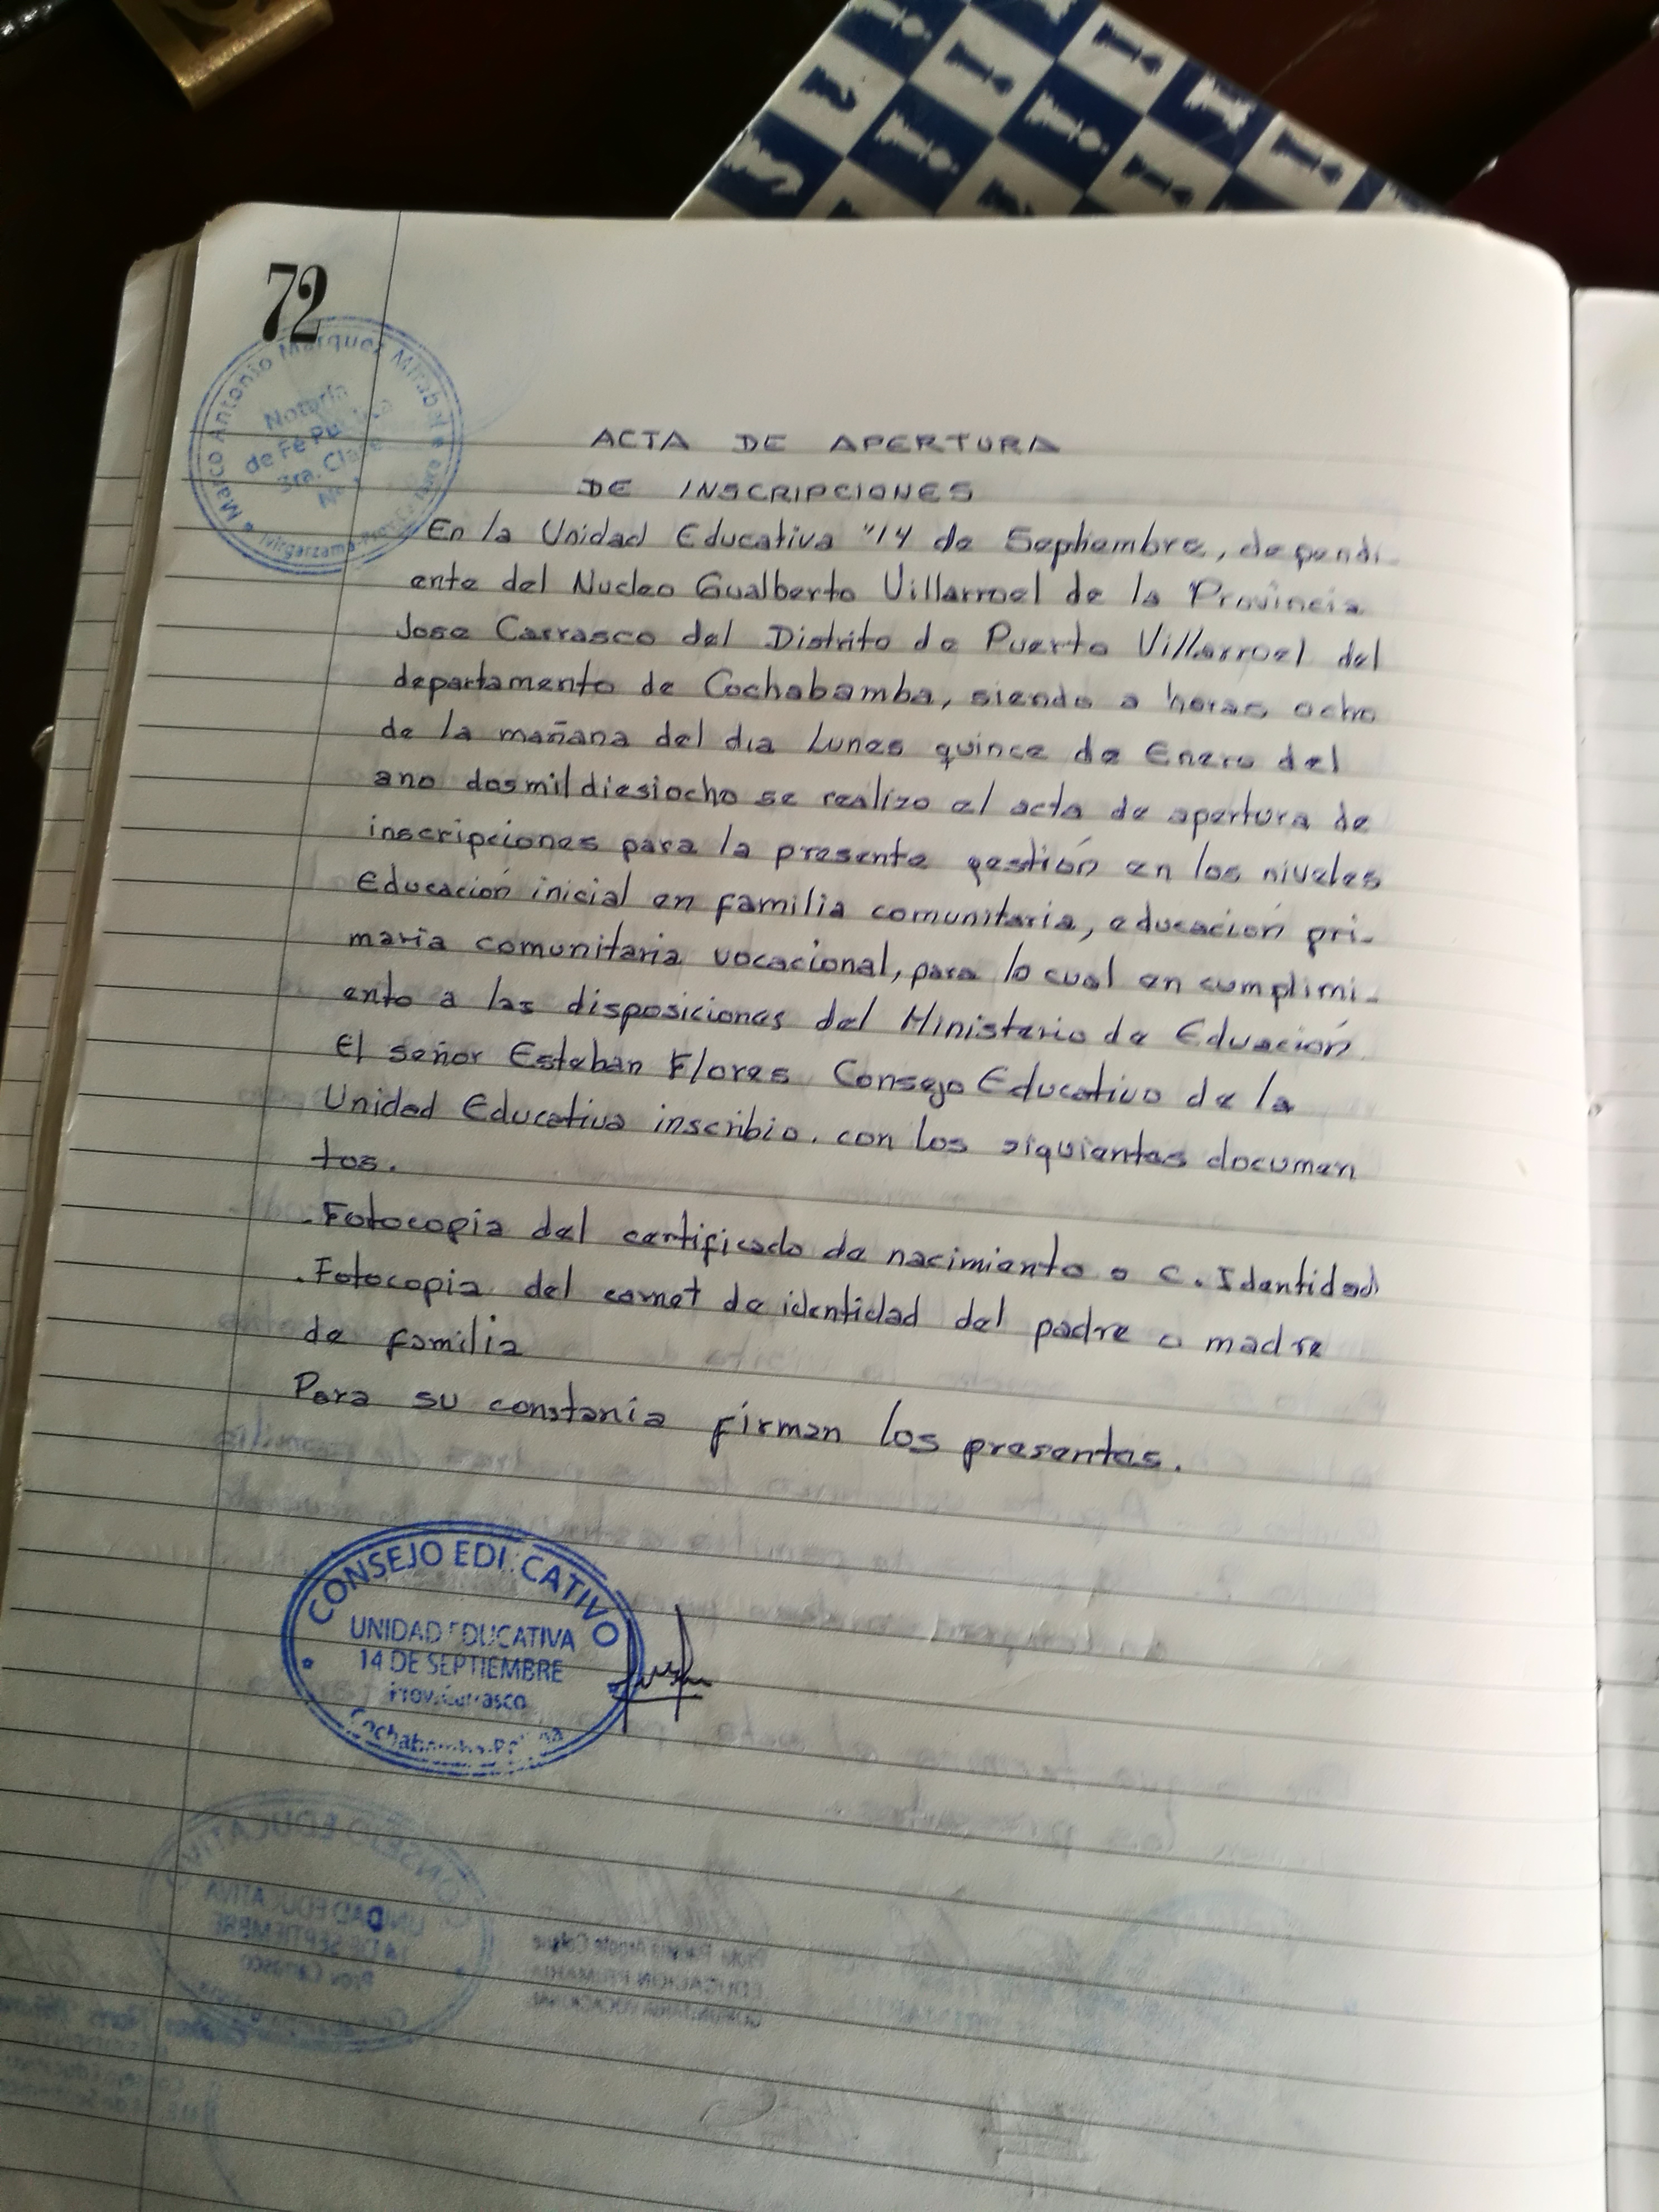 72
Marco Antonio Marquez Mirabal
Notario
de Fé Pública
3ra. Clase
Ivirgarzama
ACTA DE APERTURA
DE INSCRIPCIONES
En la Unidad Educativa "14 de Septiembre, dependi-
ente del Nucleo Gualberto Villarroel de la Provincia
Jose Carrasco del Distrito de Puerto Villarroel del
departamento de Cochabamba, siendo a horas ocho
de la mañana del dia Lunes quince de Enero del
ano dosmildiesiocho se realizo el acta de apertura de
inscripciones para la presente gestión en los niveles
Educación inicial en familia comunitaria, educación pri-
maria comunitaria vocacional, para lo cual en cumplimi-
ento a las disposiciones del Ministerio de Eduación
El señor Esteban Flores Consejo Educativo de la
Unidad Educativa inscribio. con los siguientes documen
tos.
.Fotocopia del certificado de nacimiento o C. Identidad
.Fotocopia del carnet de identidad del padre o madre
de familia
Para su constania firman los presentes.
CONSEJO EDUCATIVO
UNIDAD EDUCATIVA
14 DE SEPTIEMBRE
Prov. Carrasco
Cochabamba